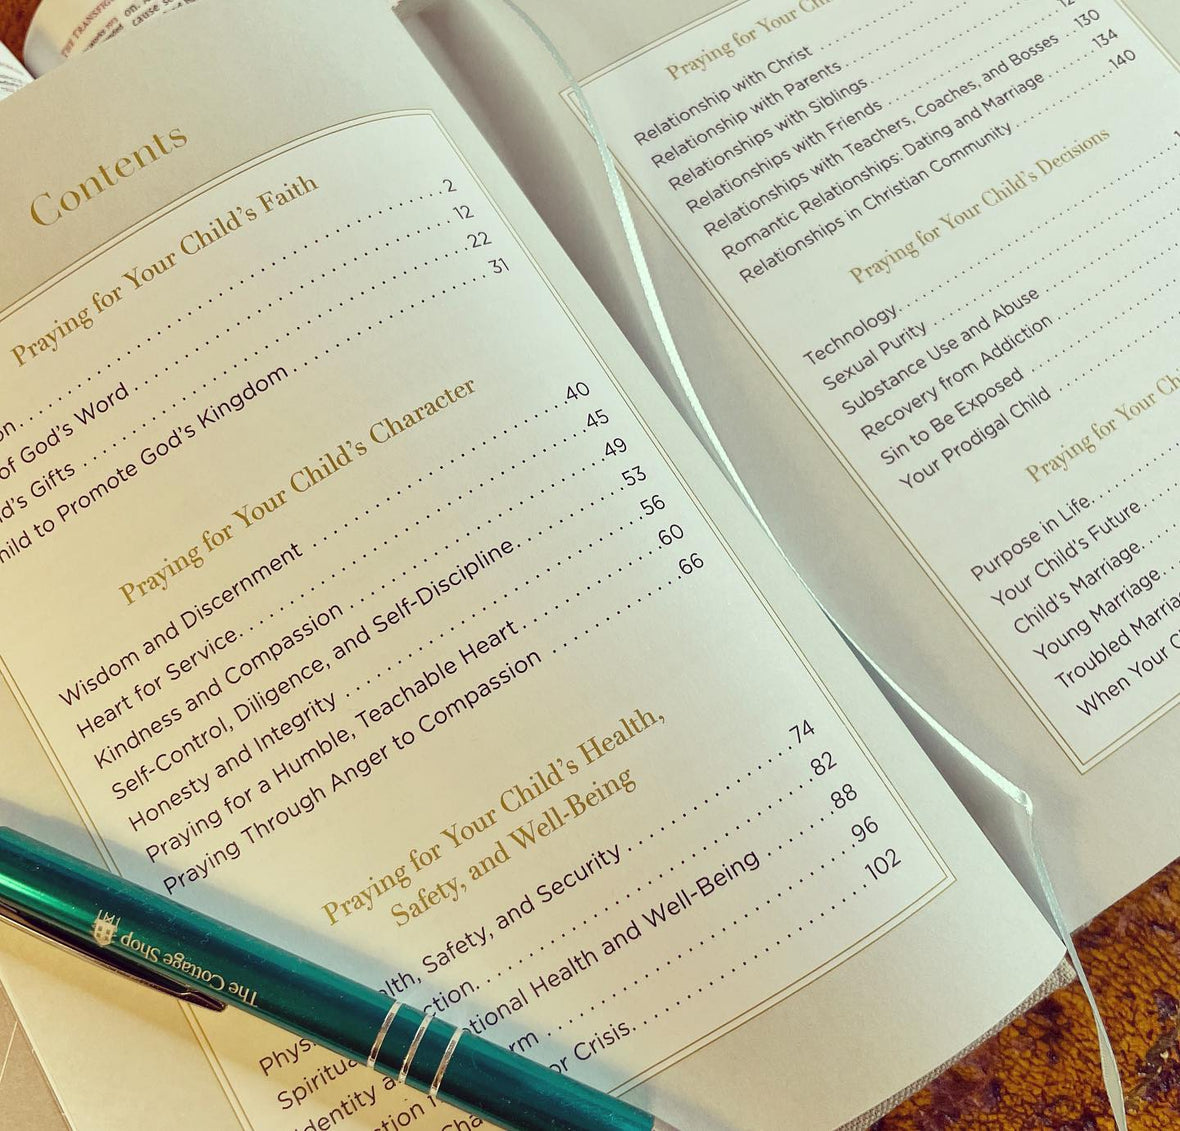 THE TRANSFIG
Contents
Praying for Your Child's Faith
on. . . . 2
of God's Word . . . . 12
d's Gifts . . . . 22
hild to Promote God's Kingdom . . . . 31
Praying for Your Child's Character
Wisdom and Discernment . . . . 40
Heart for Service. . . . 45
Kindness and Compassion . . . . 49
Self-Control, Diligence, and Self-Discipline . . . . 53
Honesty and Integrity . . . . 56
Praying for a Humble, Teachable Heart . . . . 60
Praying Through Anger to Compassion . . . . 66
Praying for Your Child's Health,
Safety, and Well-Being
Phys lth, Safety, and Security . . . . 74
Spiritua ction. . . . 82
dentity a tional Health and Well-Being . . . . 88
ction rm . . . . 96
Cha or Crisis. . . . 102
The Cottage Shop
Praying for Your Chi
Relationship with Christ
Relationship with Parents
Relationships with Siblings
Relationships with Friends
Relationships with Teachers, Coaches, and Bosses . . . . 130
Romantic Relationships: Dating and Marriage . . . . 134
Relationships in Christian Community . . . . 140
Praying for Your Child's Decisions
Technology
Sexual Purity
Substance Use and Abuse
Recovery from Addiction
Sin to Be Exposed
Your Prodigal Child
Praying for Your Ch
Purpose in Life
Your Child's Future
Child's Marriage
Young Marriage
Troubled Marria
When Your C